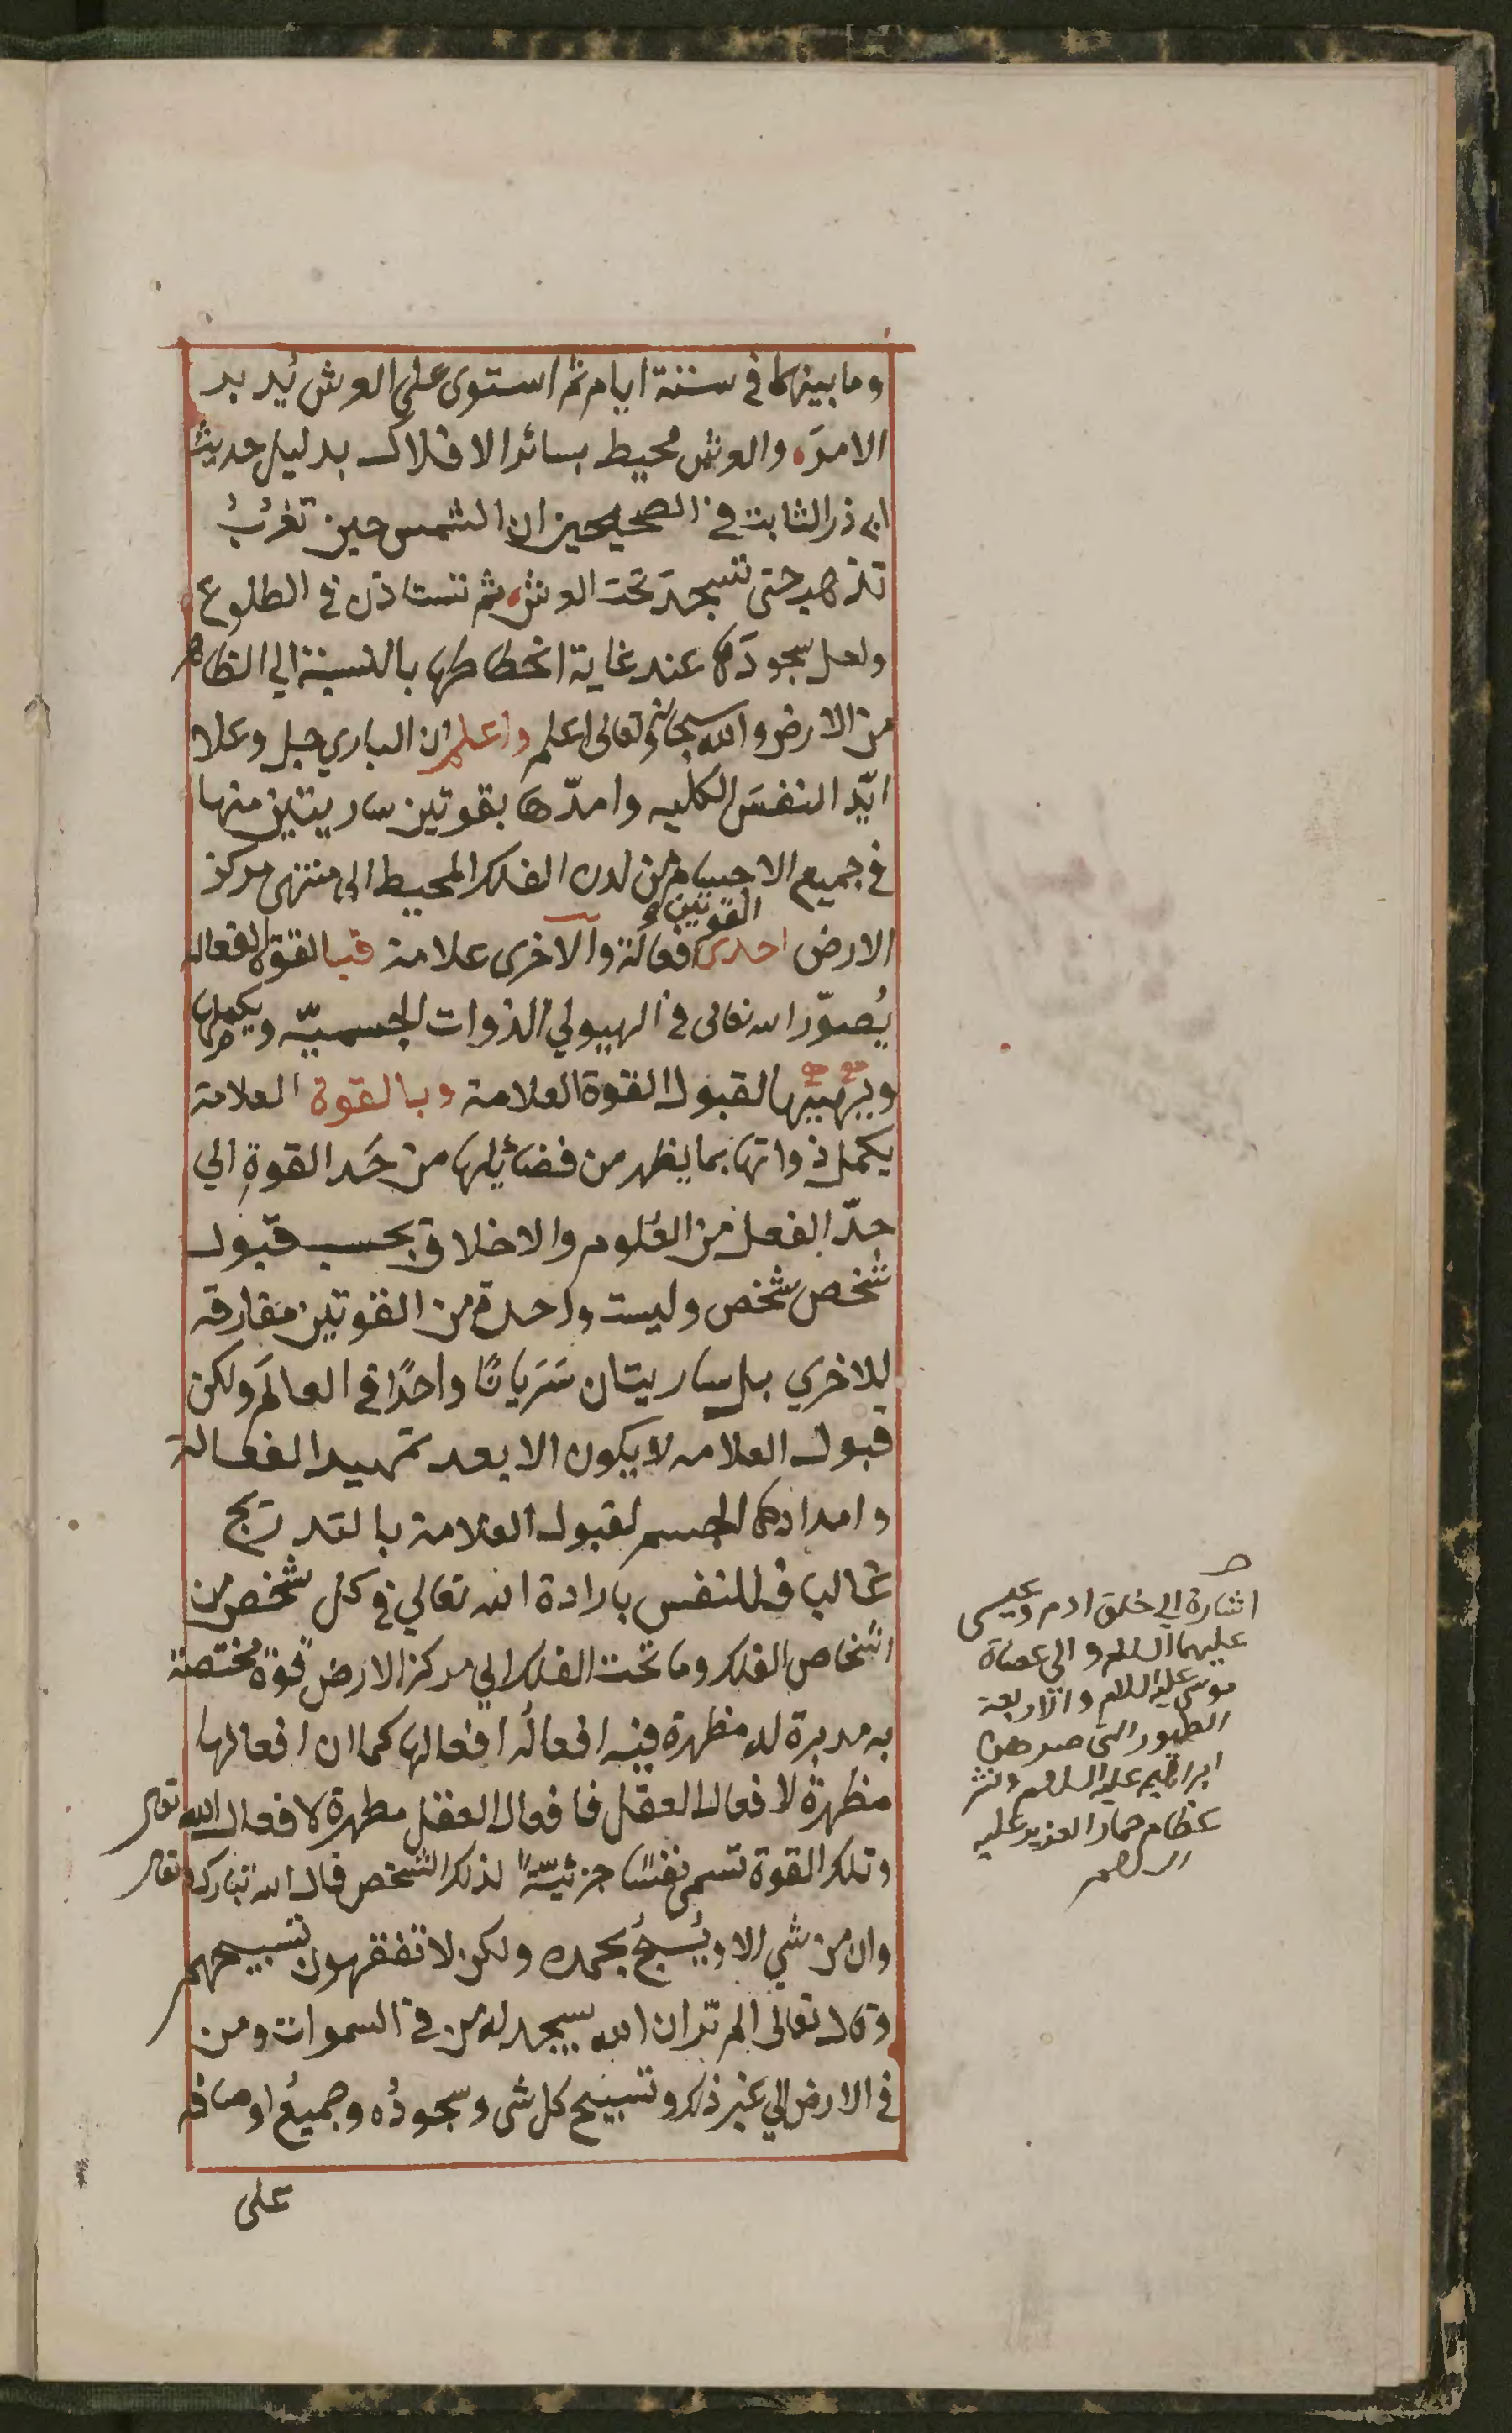 وما بينهما في ستة ايام ثم استوى على العرش يُدبر
الامرَ، والعرش محيط بسائر الافلاك بدليل حديث
ابي ذر الثابت في الصحيحين ان الشمس حين تغرُبُ
تذهب حتى تسجدَ تحت العرش، ثم تستاذن في الطلوع
ولعل سجودَها عند غاية انحطاطها بالنسبة الي الظاهر
من الارض والله سبحانه وتعالى اعلم واعلم ان الباري جل وعلا
ايّد النفسَ الكليه وامدّها بقوتين ساريتين منها
في جميع الاجسام من لدن الفلك المحيط الى منتهى مركز
الارض احدى القوتين فعالة والاخرى علامة فبالقوة الفعاله
يُصوّر الله تعالى في الهيولي الذوات الجسميّه ويكملها
ويهيئها لقبول القوة العلامة وبالقوة العلامة
يكمل ذواتها بما يظهر من فضائلها من حَد القوةِ الي
حدّ الفعل من العُلوم والاخلاق بحسب قبول
شخص شخص وليست واحدة من القوتين مفارقه
للاخري بل ساريتان سَرَيانًا واحدًا في العالَم ولكن
قبول العلامه لا يكون الا بعد تمهيد الفعالة
وامدادها الجسم لقبول العلامة بالتدريج
غالبا فللنفس بارادة الله تعالي في كل شخص من
اشخاص الفلك وما تحت الفلك الي مركز الارض قوةً مختصة
به مدبرة له مظهرة فيه افعالُه افعالها كما ان افعالها
مظهرةٌ لافعال العقل فافعال العقل مطهرة لافعال الله تعالى
وتلك القوة تسمى نفسًا جزئيّةً لذلك الشخص قال الله تبارك وتعالى
وان من شي الا ويُسبحُ بحمده ولكن لا تفقهون تسبيحهم
وقال تعالى الم تر ان الله يسجد له من في السموات ومن
في الارض الي غير ذلك وتسبيح كل شى وسجودُه وجميعُ اوصافه
على
اشارة الي خلق ادم وعيسى
عليهما السلام والي عصاة
موسى عليه السلام والاربعة
الطيور التي صرهن
ابراهيم عليه السلام ونشر
عظام حمار العزير عليه
السلام